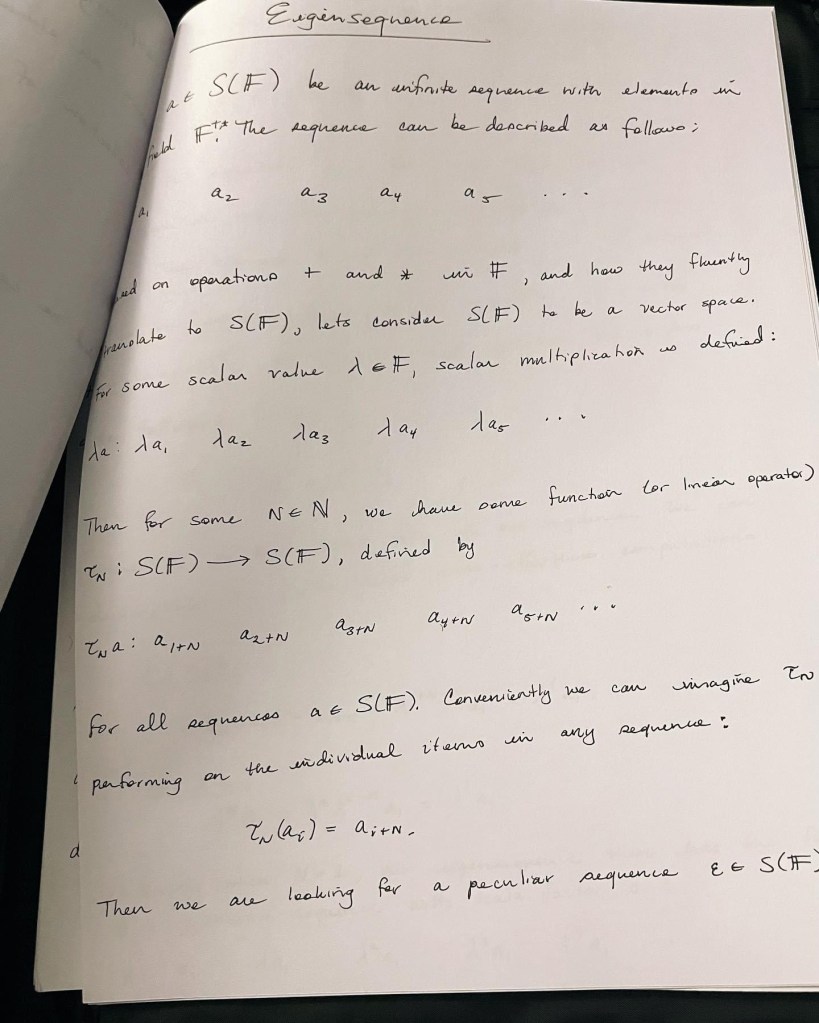 Eigensequence
a ∈ S(𝔽) be an infinite sequence with elements in
field 𝔽.** The sequence can be described as follows:
a₁ a₂ a₃ a₄ a₅ ...
on operations + and * in 𝔽, and how they fluently
translate to S(𝔽), lets consider S(𝔽) to be a vector space.
For some scalar value λ ∈ 𝔽, scalar multiplication is defined:
λa: λa₁ λa₂ λa₃ λa₄ λa₅ ...
Then for some N ∈ ℕ, we have some function (or linear operator)
τ_N : S(𝔽) ⟶ S(𝔽), defined by
τ_N a: a_{1+N} a_{2+N} a_{3+N} a_{4+N} a_{5+N} ...
for all sequences a ∈ S(𝔽). Conveniently we can imagine τ_N
performing on the individual items in any sequence:
τ_N(a_i) = a_{i+N}.
Then we are looking for a peculiar sequence ε ∈ S(𝔽)